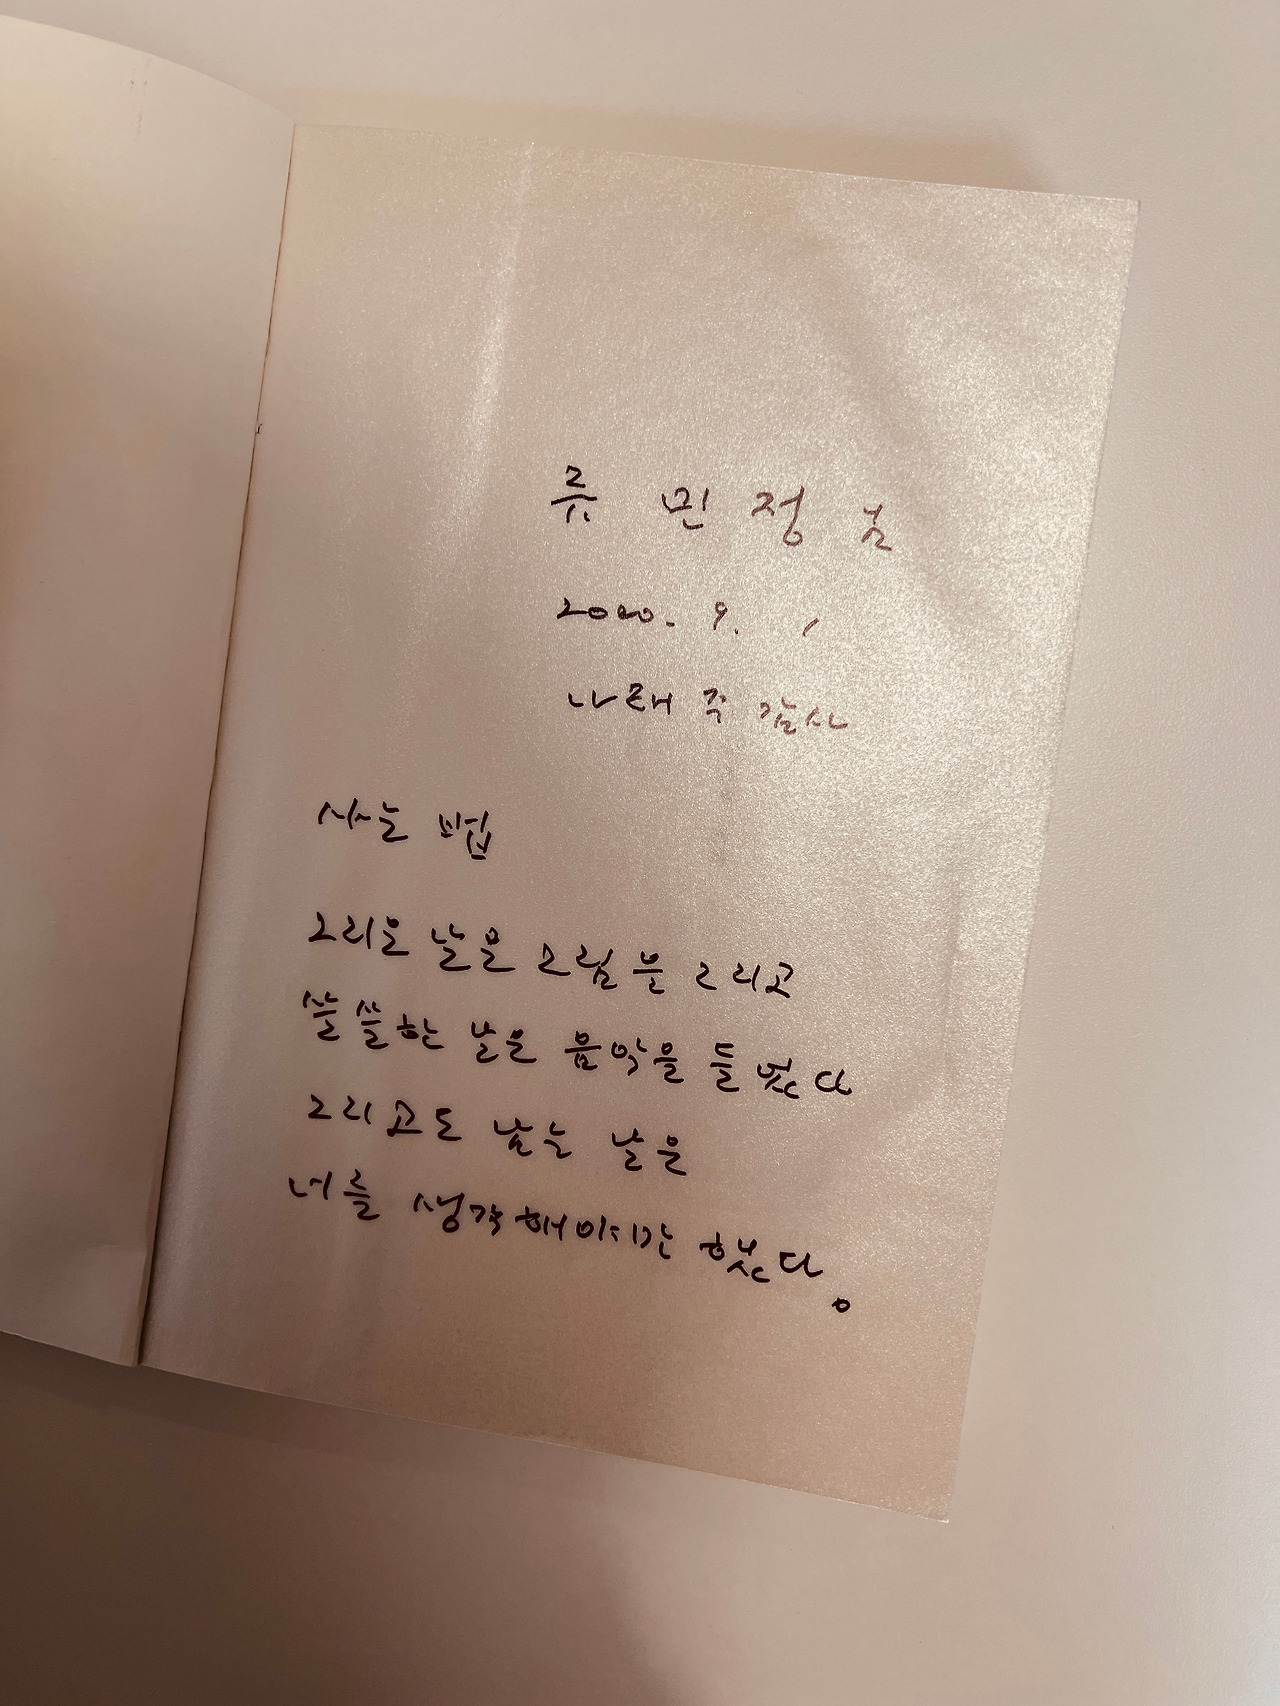 류 민 정 님
2020. 9.
나태주 감사
사는 법
그리운 날은 그림을 그리고
쓸쓸한 날은 음악을 들었다
그리고도 남는 날은
너를 생각해야만 했다.